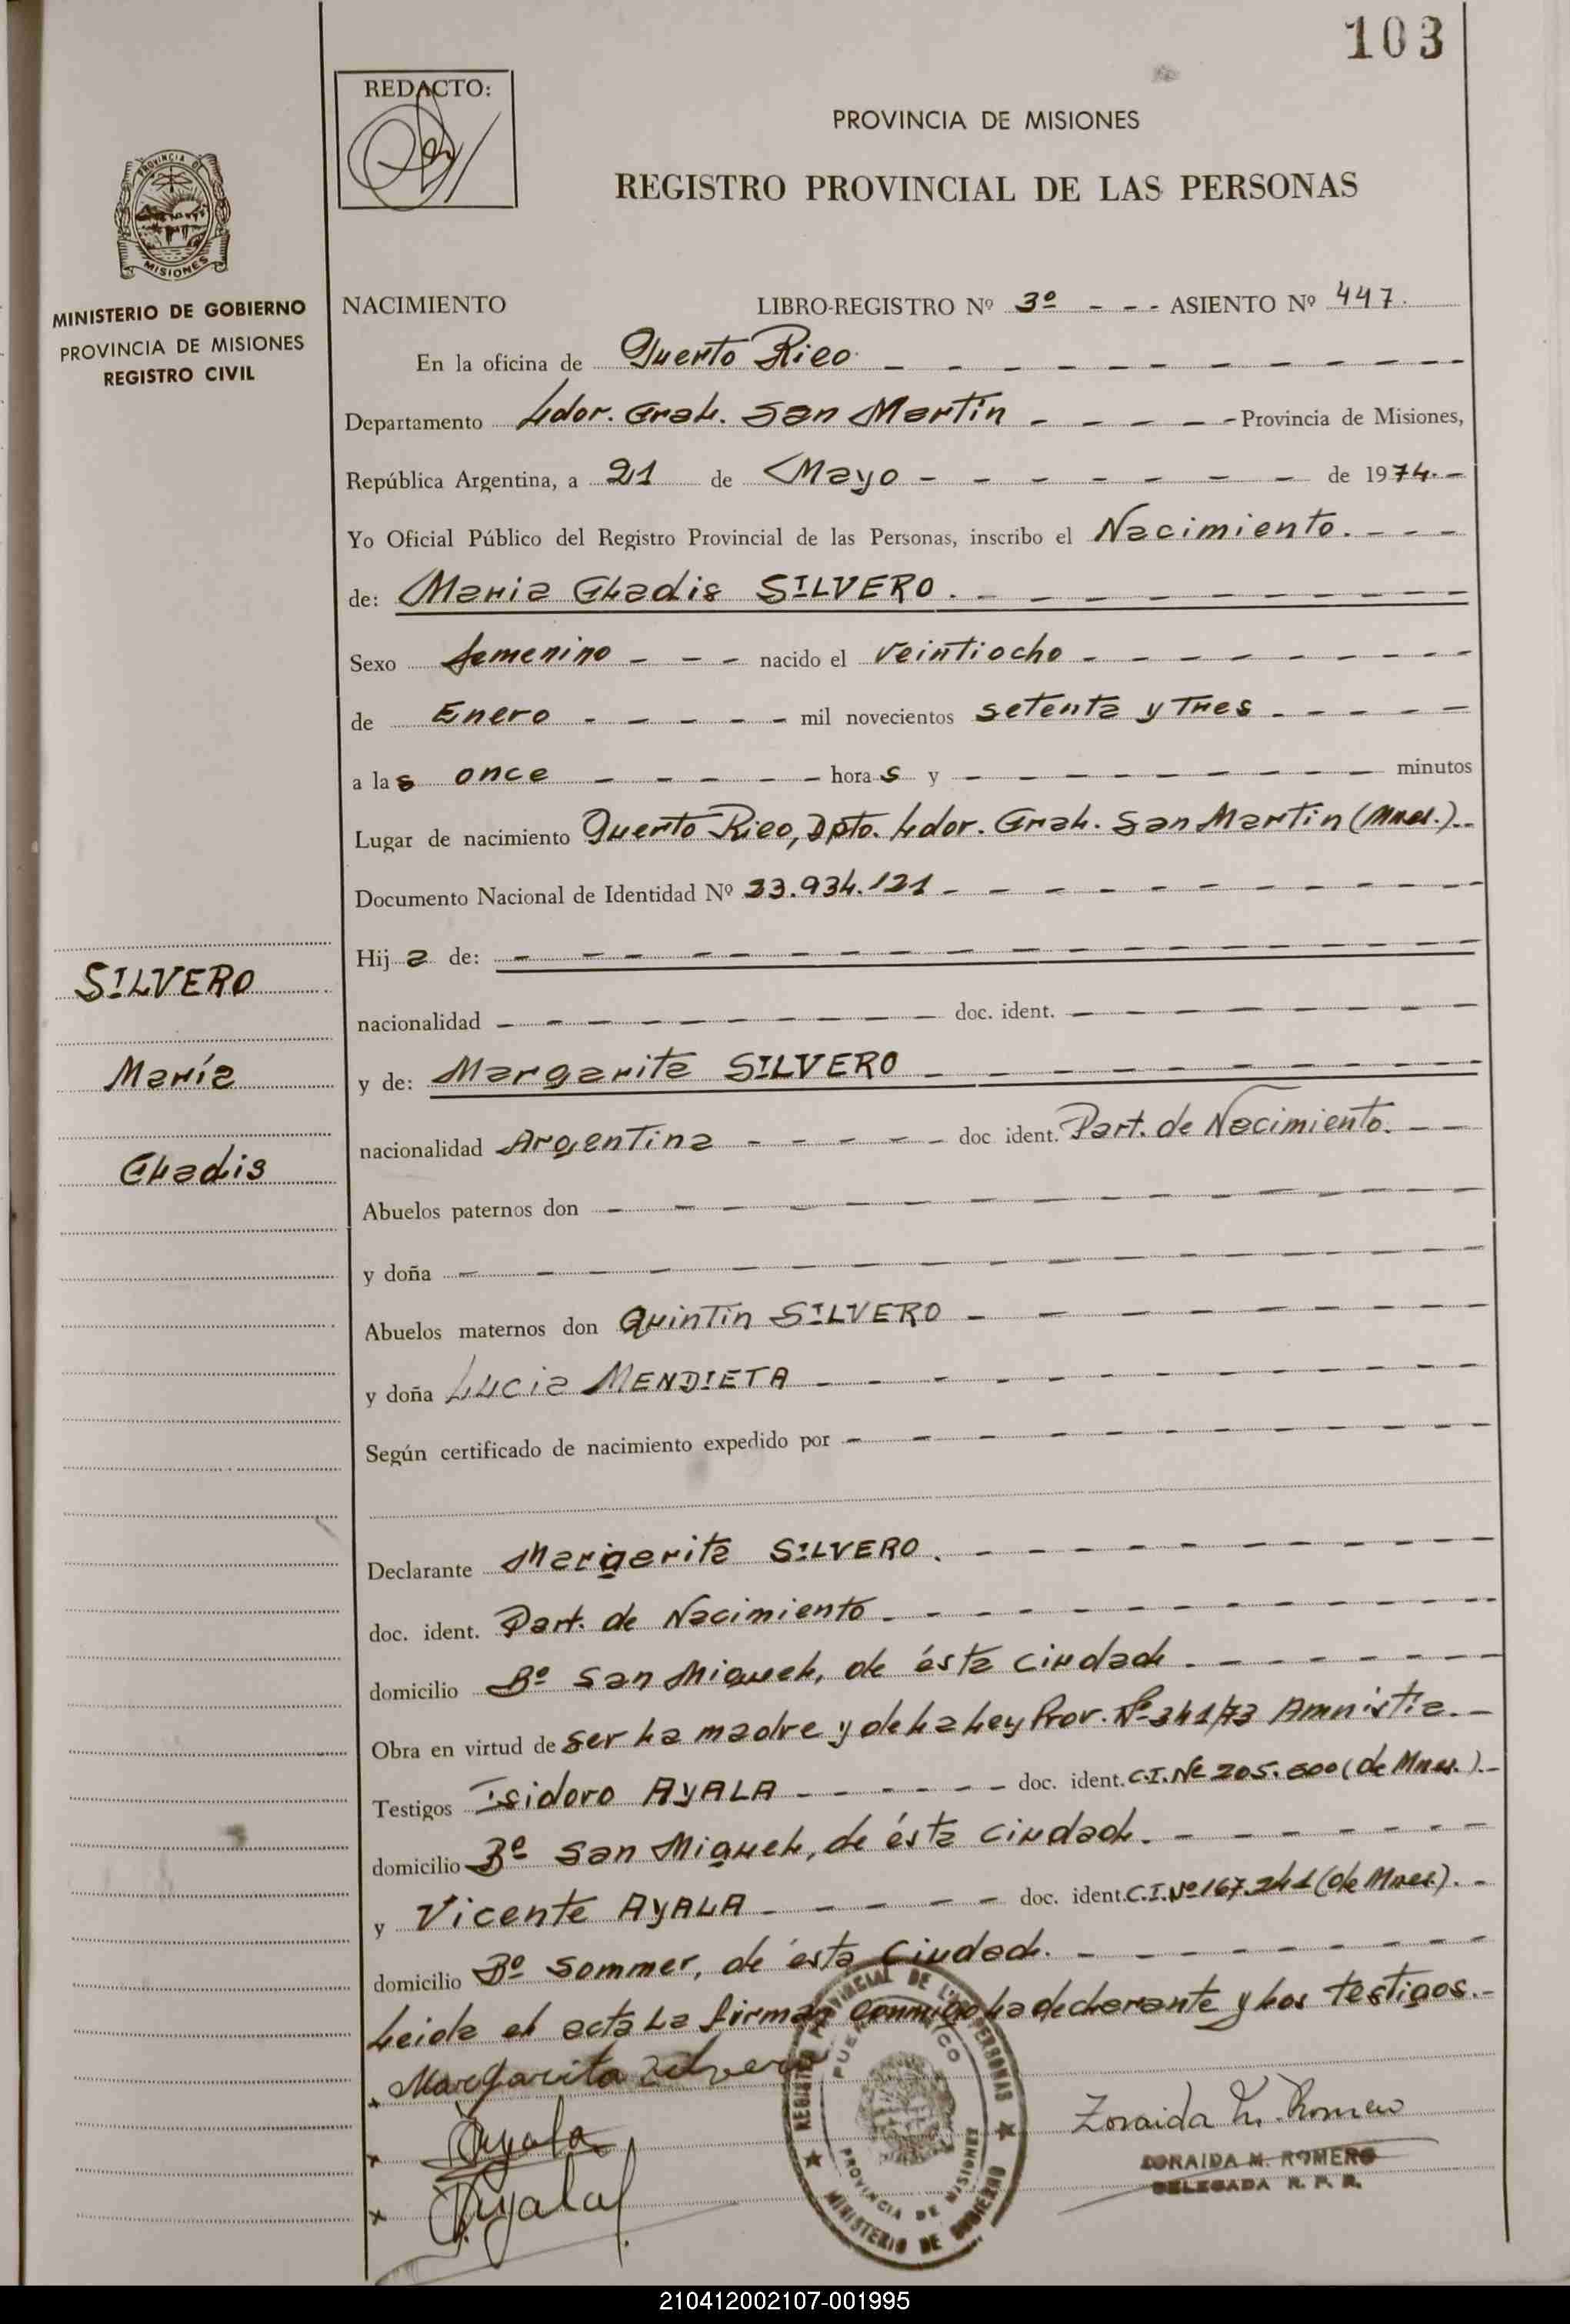 103
REDACTO:
PROVINCIA DE MISIONES
REGISTRO PROVINCIAL DE LAS PERSONAS
PROVINCIA DE
MISIONES
MINISTERIO DE GOBIERNO
PROVINCIA DE MISIONES
REGISTRO CIVIL
NACIMIENTO LIBRO-REGISTRO Nº 3º - - - ASIENTO Nº 447.
En la oficina de Puerto Rico - - - - - - - - - -
Departamento Ldor. Gral. San Martín - - - - - Provincia de Misiones,
República Argentina, a 21 de Mayo - - - - - - - de 1974.-
Yo Oficial Público del Registro Provincial de las Personas, inscribo el Nacimiento. - - -
de: Maria Gladis SILVERO. - - - - - - - - -
Sexo femenino - - - nacido el veintiocho - - - - - - - -
de Enero - - - - - mil novecientos setenta y tres - - - - -
a las once - - - - - horas y - - - - - - - - minutos
Lugar de nacimiento Puerto Rico, Dpto. Ldor. Gral. San Martín (Mnes.).-
Documento Nacional de Identidad Nº 23.934.121 - - - - - - - - - -
Hija de: - - - - - - - - - - - - -
nacionalidad - - - - - - - - - doc. ident. - - - - - - -
y de: Margarita SILVERO - - - - - - - - -
nacionalidad Argentina - - - - - doc ident. Part. de Nacimiento. - -
Abuelos paternos don - - - - - - - - - -
y doña - - - - - - - - - - - -
Abuelos maternos don Quintin SILVERO - - - - - - -
y doña Lucia MENDIETA - - - - - - - - -
Según certificado de nacimiento expedido por - - - - - - - - -
Declarante Margarita SILVERO. - - - - - - - - -
doc. ident. Part. de Nacimiento - - - - - - - - - -
domicilio Bº San Miguel, de ésta ciudad - - - - - - -
Obra en virtud de ser la madre y de la Ley Prov. Nº 341/73 Amnistía.-
Testigos Isidoro AYALA - - - - - - doc. ident. C.I.Nº 205.600 (de Mnes.).-
domicilio Bº San Miguel, de ésta ciudad. - - - - - - -
y Vicente AYALA - - - - - doc. ident. C.I.Nº 167.241 (de Mnes.). -
domicilio Bº Sommer, de ésta Ciudad. - - - - - - - -
Leida el acta la firman conmigo la declarante y los testigos.-
Margarita Silvero
Ayala
Ayala
REGISTRO PROVINCIAL DE LAS PERSONAS
PUERTO RICO
PROVINCIA DE MISIONES
MINISTERIO DE GOBIERNO
Zoraida M. Romero
ZORAIDA M. ROMERO
DELEGADA R. P. P.
SILVERO
María
Gladis
210412002107-001995